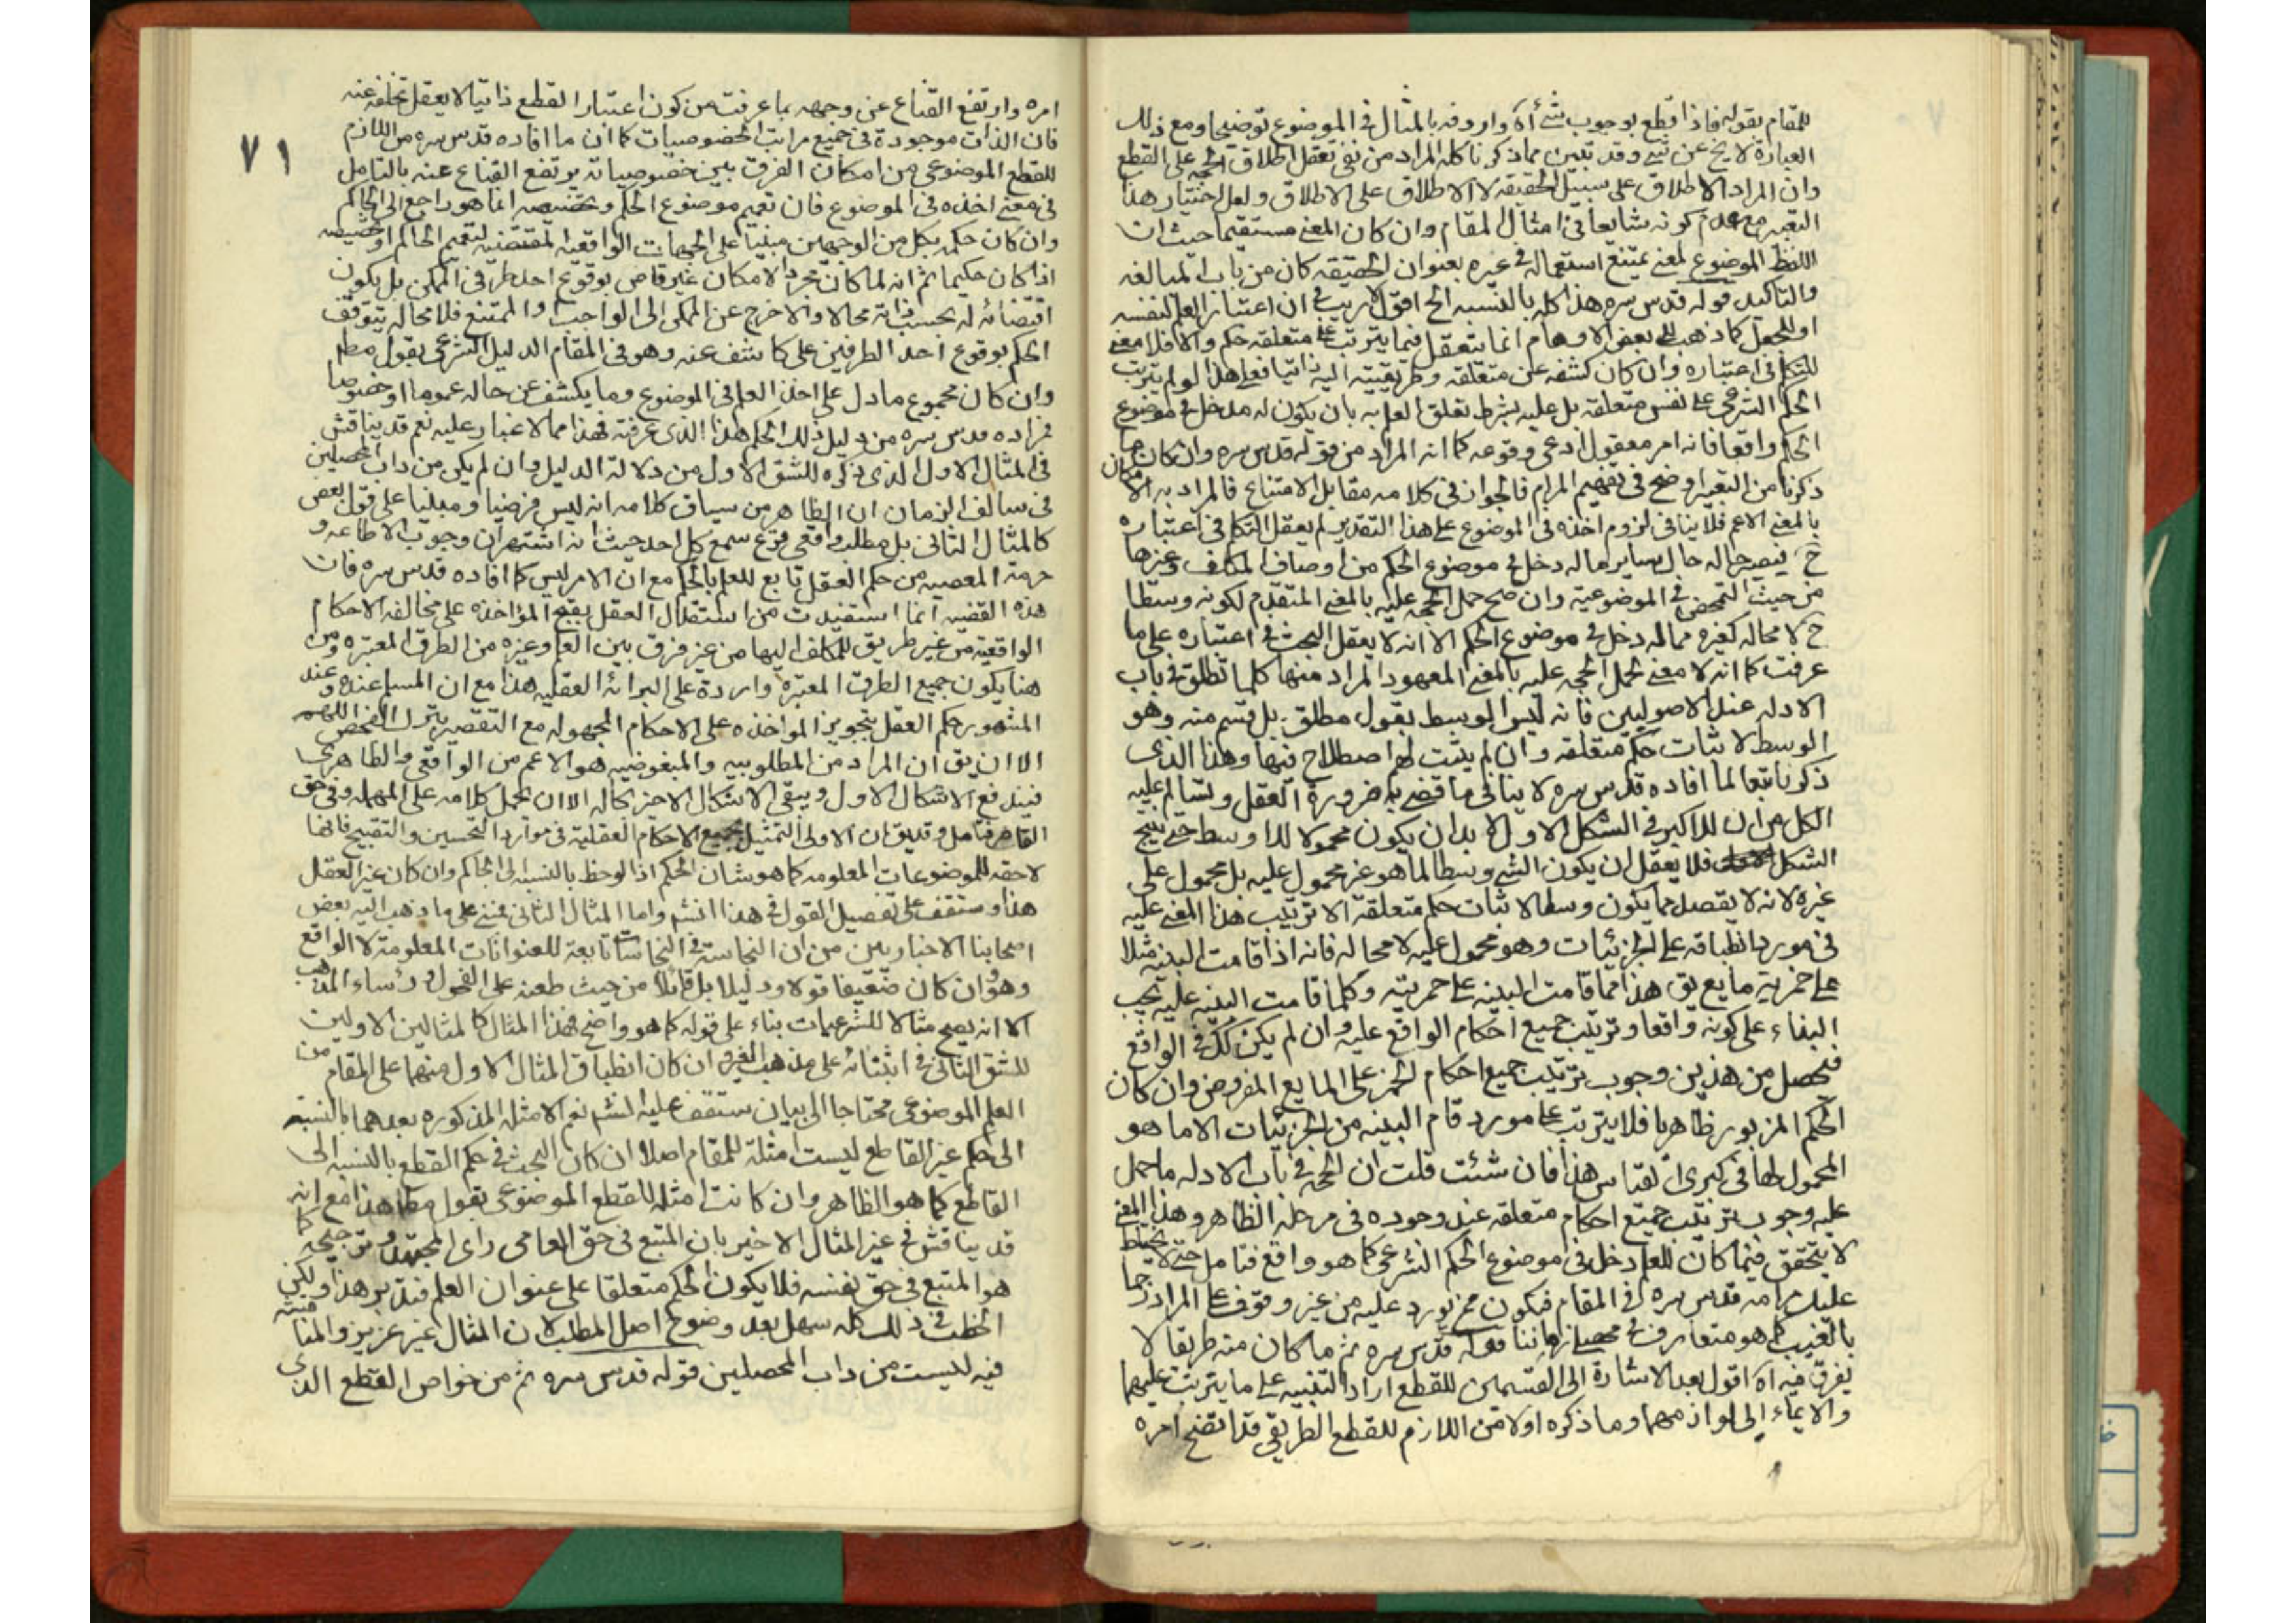 للمقام بقوله فاذا قطع بوجوب شئ آه واردفه بالمثال في الموضوع توضيحا ومع ذلك
العبارة لا يخ عن شئ وقد تبين مما ذكرنا كله المراد من نفى تعقل اطلاق الحجة على القطع
وان المراد الاطلاق على سبيل الحقيقة لا الاطلاق على الاطلاق ولعل اختيار هذا
التعبير مع عدم كونه شايعا في امثال المقام وان كان المعنى مستقيما حيث ان
اللفظ الموضوع لمعنى يمتنع استعماله في غيره بعنوان الحقيقة كان من باب المبالغه
والتاكيد قوله قدس سره هذا كله بالنسبه الخ اقول لا ريب في ان اعتبار العلم لنفسه
او للجعل كما ذهب اليه بعض الاوهام انما يتعقل فيما يترتب على متعلقه حكم والا فلا معنى
للتكلم في اعتباره وان كان كشفه عن متعلقه وطريقيته اليه ذاتيا فعلى هذا لو لم يترتب
الحكم الشرعي على نفس متعلقه بل عليه بشرط تعلق العلم به بان يكون له مدخل في موضوع
الحكم واقعا فانه امر معقول ادعى وقوعه كما انه المراد من قوله قدس سره وان كان ما
ذكرنا من التعبير اوضح في تفهيم المرام فالجواز في كلامه مقابل الامتناع فالمراد به الامكان
بالمعنى الاعم فلا ينافى لزوم اخذه في الموضوع على هذا التقدير لم يعقل التكلم في اعتباره
ح فيصير حاله حال ساير ما له دخل في موضوع الحكم من اوصاف المكلف وغيرها
من حيث التمحض في الموضوعية وان صح حمل الحجه عليه بالمعنى المتقدم لكونه وسطا
ح لا محاله كغيره مما له دخل في موضوع الحكم الا انه لا يعقل البحث في اعتباره على ما
عرفت كما انه لا معنى لحمل الحجه عليه بالمعنى المعهود المراد منها كلما تطلق في باب
الادله عند الاصوليين فانه ليس الوسط بقول مطلق بل قسم منه وهو
الوسط لاثبات حكم متعلقه وان لم يثبت لهم اصطلاح فيها وهذا الذى
ذكرنا تبعا لما افاده قدس سره لا ينافى ما قضى به ضرورة العقل وتسالم عليه
الكل من ان للاكبر في الشكل الاول لا بد ان يكون محمولا للاوسط حتى ينتج
الشكل فلا يعقل ان يكون الشئ وسطا لما هو غير محمول عليه بل محمول على
غيره لانه لا يقصد مما يكون وسطا لاثبات حكم متعلقه الا ترتيب هذا المعنى عليه
في مورد انطباقه على الجزئيات وهو محمول عليه لا محاله فانه اذا قامت البينة مثلا
على خمرية مايع يق هذا مما قامت البينه على خمريته وكلما قامت البينه عليه يجب
البناء على كونه واقعا وترتيب جميع احكام الواقع عليه وان لم يكن كك في الواقع
فيحصل من هذين وجوب ترتيب جميع احكام الخمر على المايع المفروض وان كان
الحكم المزبور ظاهريا فلا يترتب على مورد قيام البينه من الجزئيات الا ما هو
المحمول لها في كبرى القياس هذا فان شئت قلت ان الحجه في باب الادله ما حمل
عليه وجوب ترتيب جميع احكام متعلقه عند وجوده في مرحلة الظاهر وهذا المعنى
لا يتحقق فيما كان للعلم دخل في موضوع الحكم الشرعي كما هو واقع فتامل حتى لا يختلط
عليك مرامه قدس سره في المقام فيكون ممن يورد عليه من غير وقوف على المراد رجما
بالغيب كما هو متعارف في محصلى زماننا قوله قدس سره ثم ما كان منه طريقا لا
يفرق فيه آه اقول بعد الاشارة الى القسمين للقطع اراد التنبيه على ما يترتب عليهما
والايماء الى لوازمهما وما ذكره اولا من اللازم للقطع الطريقي قد اتضح امره
٧١
امره وارتفع القناع عن وجهه بما عرفت من كون اعتبار القطع ذاتيا لا يعقل تخلفه عنه
فان الذات موجودة في جميع مراتب الخصوصيات كما ان ما افاده قدس سره من اللازم
للقطع الموضوعي من امكان الفرق بين خصوصياته يرتفع القناع عنه بالتامل
في معنى اخذه في الموضوع فان تعميم موضوع الحكم وتخصيصه انما هو راجع الى الحاكم
وان كان حكمه بكل من الوجهين مبنيا على الجهات الواقعيه المقتضيه لتعميم الحاكم او تخصيصه
اذا كان حكيما ثم انه لما كان مجرد الامكان غير قاض بوقوع احد طرفى الممكن بل يكون
اقتضائه له بحسب ذاته محالا والا خرج عن الممكن الى الواجب والممتنع فلا محاله يتوقف
الحكم بوقوع احد الطرفين على كاشف عنه وهو في المقام الدليل الشرعي بقول مطلم
وان كان مجموع ما دل على اخذ العلم في الموضوع وما يكشف عن حاله عموما او خصوصا
فمراده قدس سره من دليل ذلك الحكم هذا الذى عرفته فهذا مما لا غبار عليه نعم قد يناقش
في المثال الاول الذى ذكره للشق الاول من دلالة الدليل وان لم يكن من داب المحصلين
في سالف الزمان ان الظاهر من سياق كلامه انه ليس فرضيا ومبنيا على قول بعض
كالمثال الثانى بل مطلب واقعى قرع سمع كل احد حيث انه اشتهر ان وجوب الاطاعه و
حرمة المعصيه من حكم العقل تابع للعلم بالحكم مع ان الامر ليس كما افاده قدس سره فان
هذه القضيه انما استفيدت من استقلال العقل بقبح المؤاخذه على مخالفه الاحكام
الواقعية من غير طريق للمكلف اليها من غير فرق بين العلم وغيره من الطرق المعتبره ومن
هنا يكون جميع الطرق المعتبره وارده على البرائه العقليه هذا مع ان المسلم عنده وعند
المشهور حكم العقل بتجويز المواخذه على الاحكام المجهوله مع التقصير بترك الفحص اللهم
الا ان يق ان المراد من المطلوبيه والمبغوضيه هو الاعم من الواقعي والظاهري
فيندفع الاشكال الاول ويبقى الاشكال الاخير بحاله الا ان يحمل كلامه على المهمله وفى حق
القاصر فتامل وقد يق ان الاولى التمثيل بجميع الاحكام العقلية في موارد التحسين والتقبيح فانها
لاحقه للموضوعات المعلومه كما هو شان الحكم اذا لوحظ بالنسبه الى الحاكم وان كان غير العقل
هذا وستقف على تفصيل القول في هذا انشم واما المثال الثانى فمبنى على ما ذهب اليه بعض
اصحابنا الاخباريين من ان النجاسة في النجاسات تابعة للعنوانات المعلومة لا الواقع
وهو وان كان ضعيفا قولا ودليلا بل قائلا من حيث طعنه على الفحول ورؤساء المذهب
الا انه يصح مثالا للشرعيات بناء على قوله كما هو واضح فهذا المثال كالمثالين الاولين
للشق الثانى في ابتنائه على مذهب الغير وان كان انطباق المثال الاول منهما على المقام من
العلم الموضوعي محتاجا الى بيان ستقف عليه انشم نعم الامثله المذكوره بعدهما بالنسبه
الى حكم غير القاطع ليست امثلة للمقام اصلا ان كان البحث في حكم القطع بالنسبه الى
القاطع كما هو الظاهر وان كانت امثله للقطع الموضوعي بقول مطلم هذا مع انه
قد يناقش في غير المثال الاخير بان المتبع في حق العامى راى المجتهد وترجيحه كما
هو المتبع في حق نفسه فلا يكون الحكم متعلقا على عنوان العلم فتدبر هذا ولكن
الخطب في ذلك كله سهل بعد وضوح اصل المطلب لان المثال غير عزيز والمناقشة
فيه ليست من داب المحصلين قوله قدس سره ثم من خواص القطع الذى